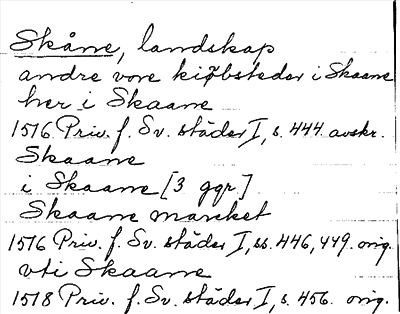 Skåne, landskap
andre vore kiøbsteder i Skaane
her i Skaane
1516 Priv. f. Sv. städer I, s. 444 avskr.
Skaane
i Skaane [3 ggr]
Skaane marcket
1516 Priv. f. Sv. städer I, ss. 446, 449. orig.
vti Skaane
1518 Priv. f. Sv. städer I, s. 456. orig.